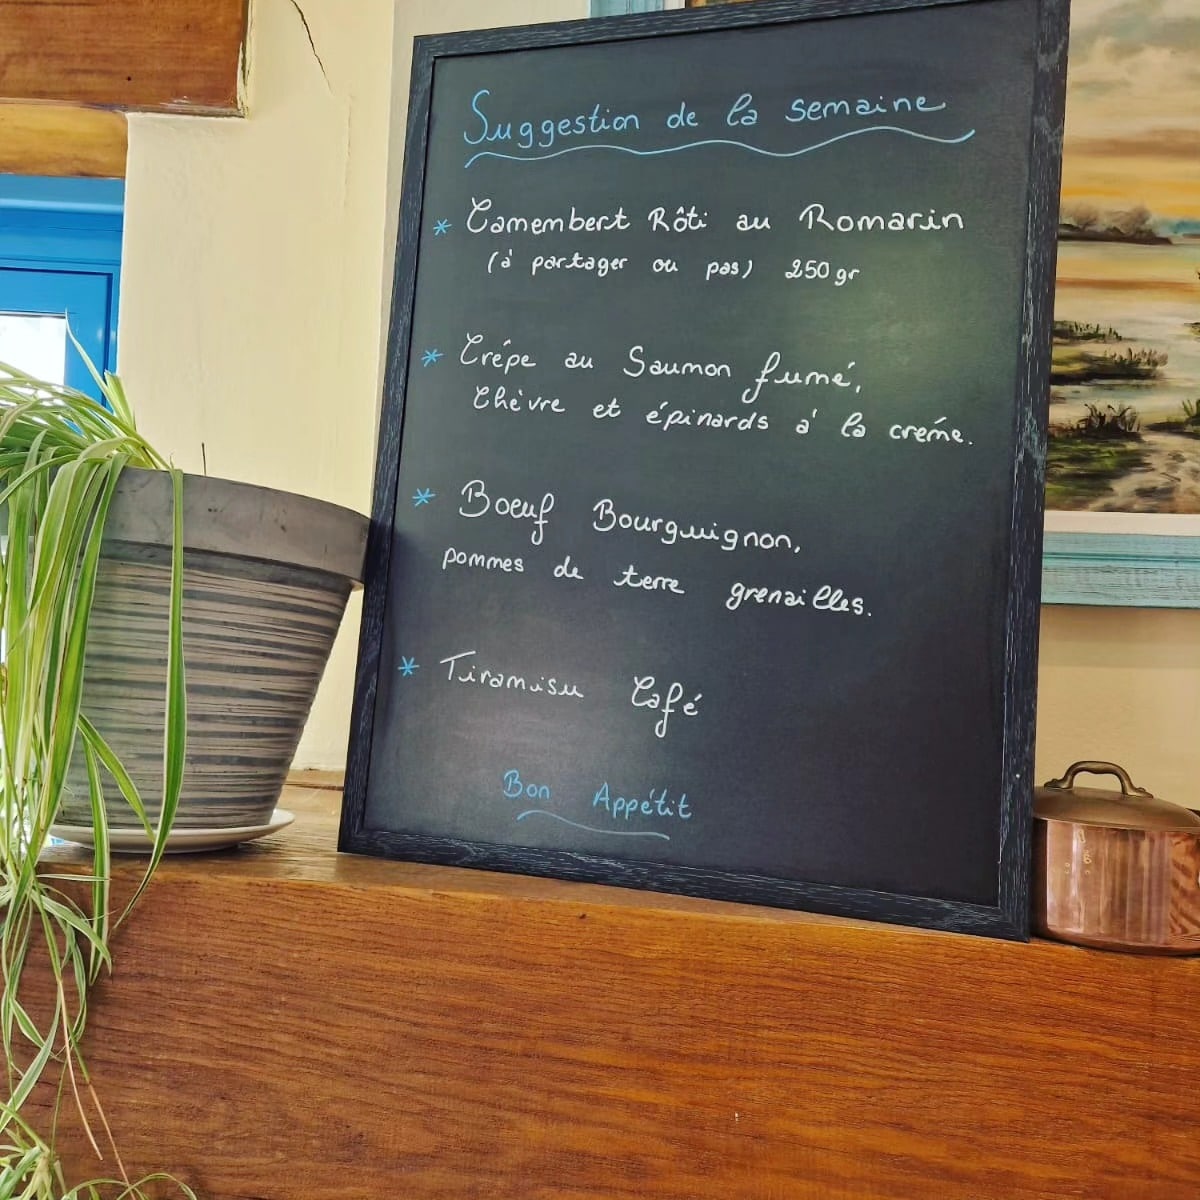 Suggestion de la semaine
* Camembert Rôti au Romarin
(à partager ou pas) 250 gr
* Crépe au Saumon fumé,
Chèvre et épinards à la creme.
* Boeuf Bourguignon,
pommes de terre grenailles.
* Tiramisu Café
Bon Appétit